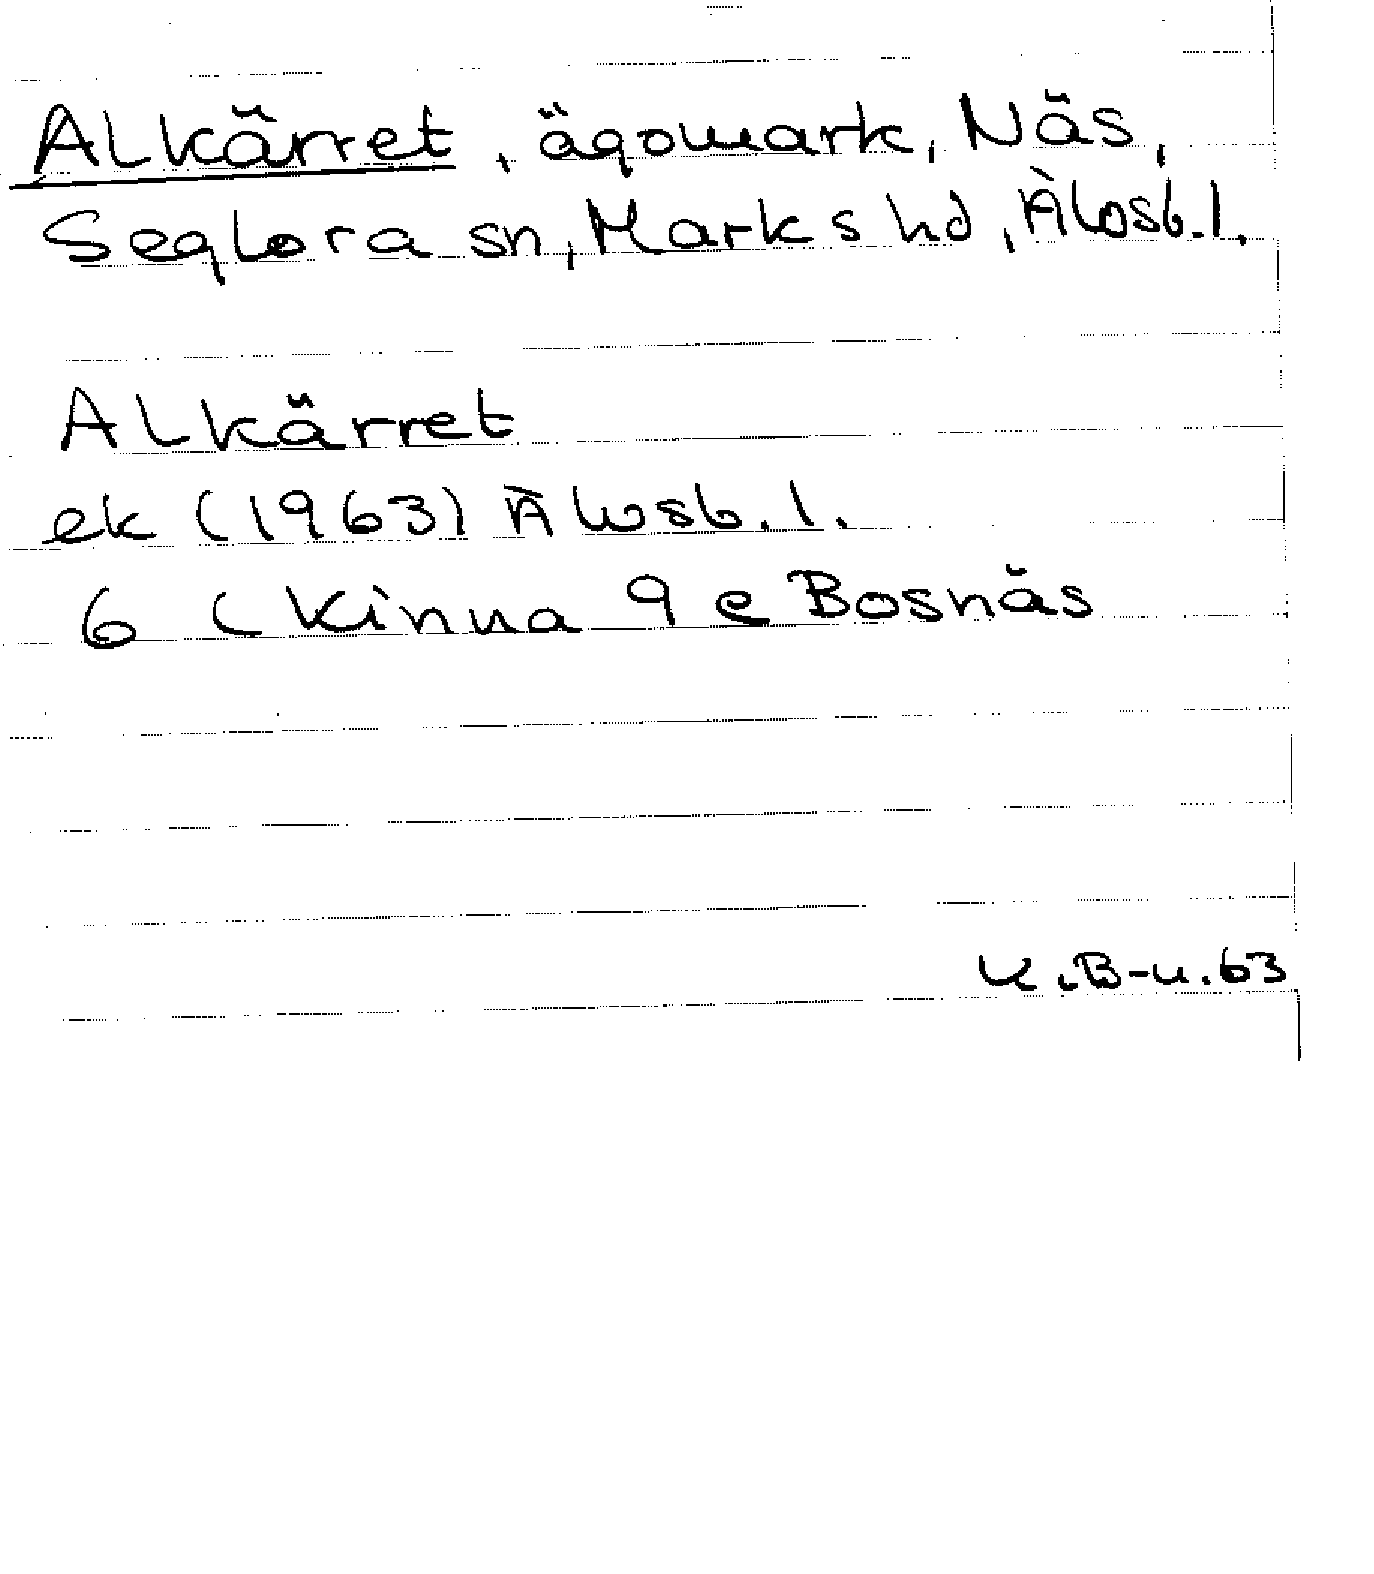 Alkärret, ägomark, Näs,
Seglora sn, Marks hd, Älvsb. l.
Alkärret
ek (1963) Älvsb. l.
6 ( Kinna 9 e Bosnäs
K.B-n. 63